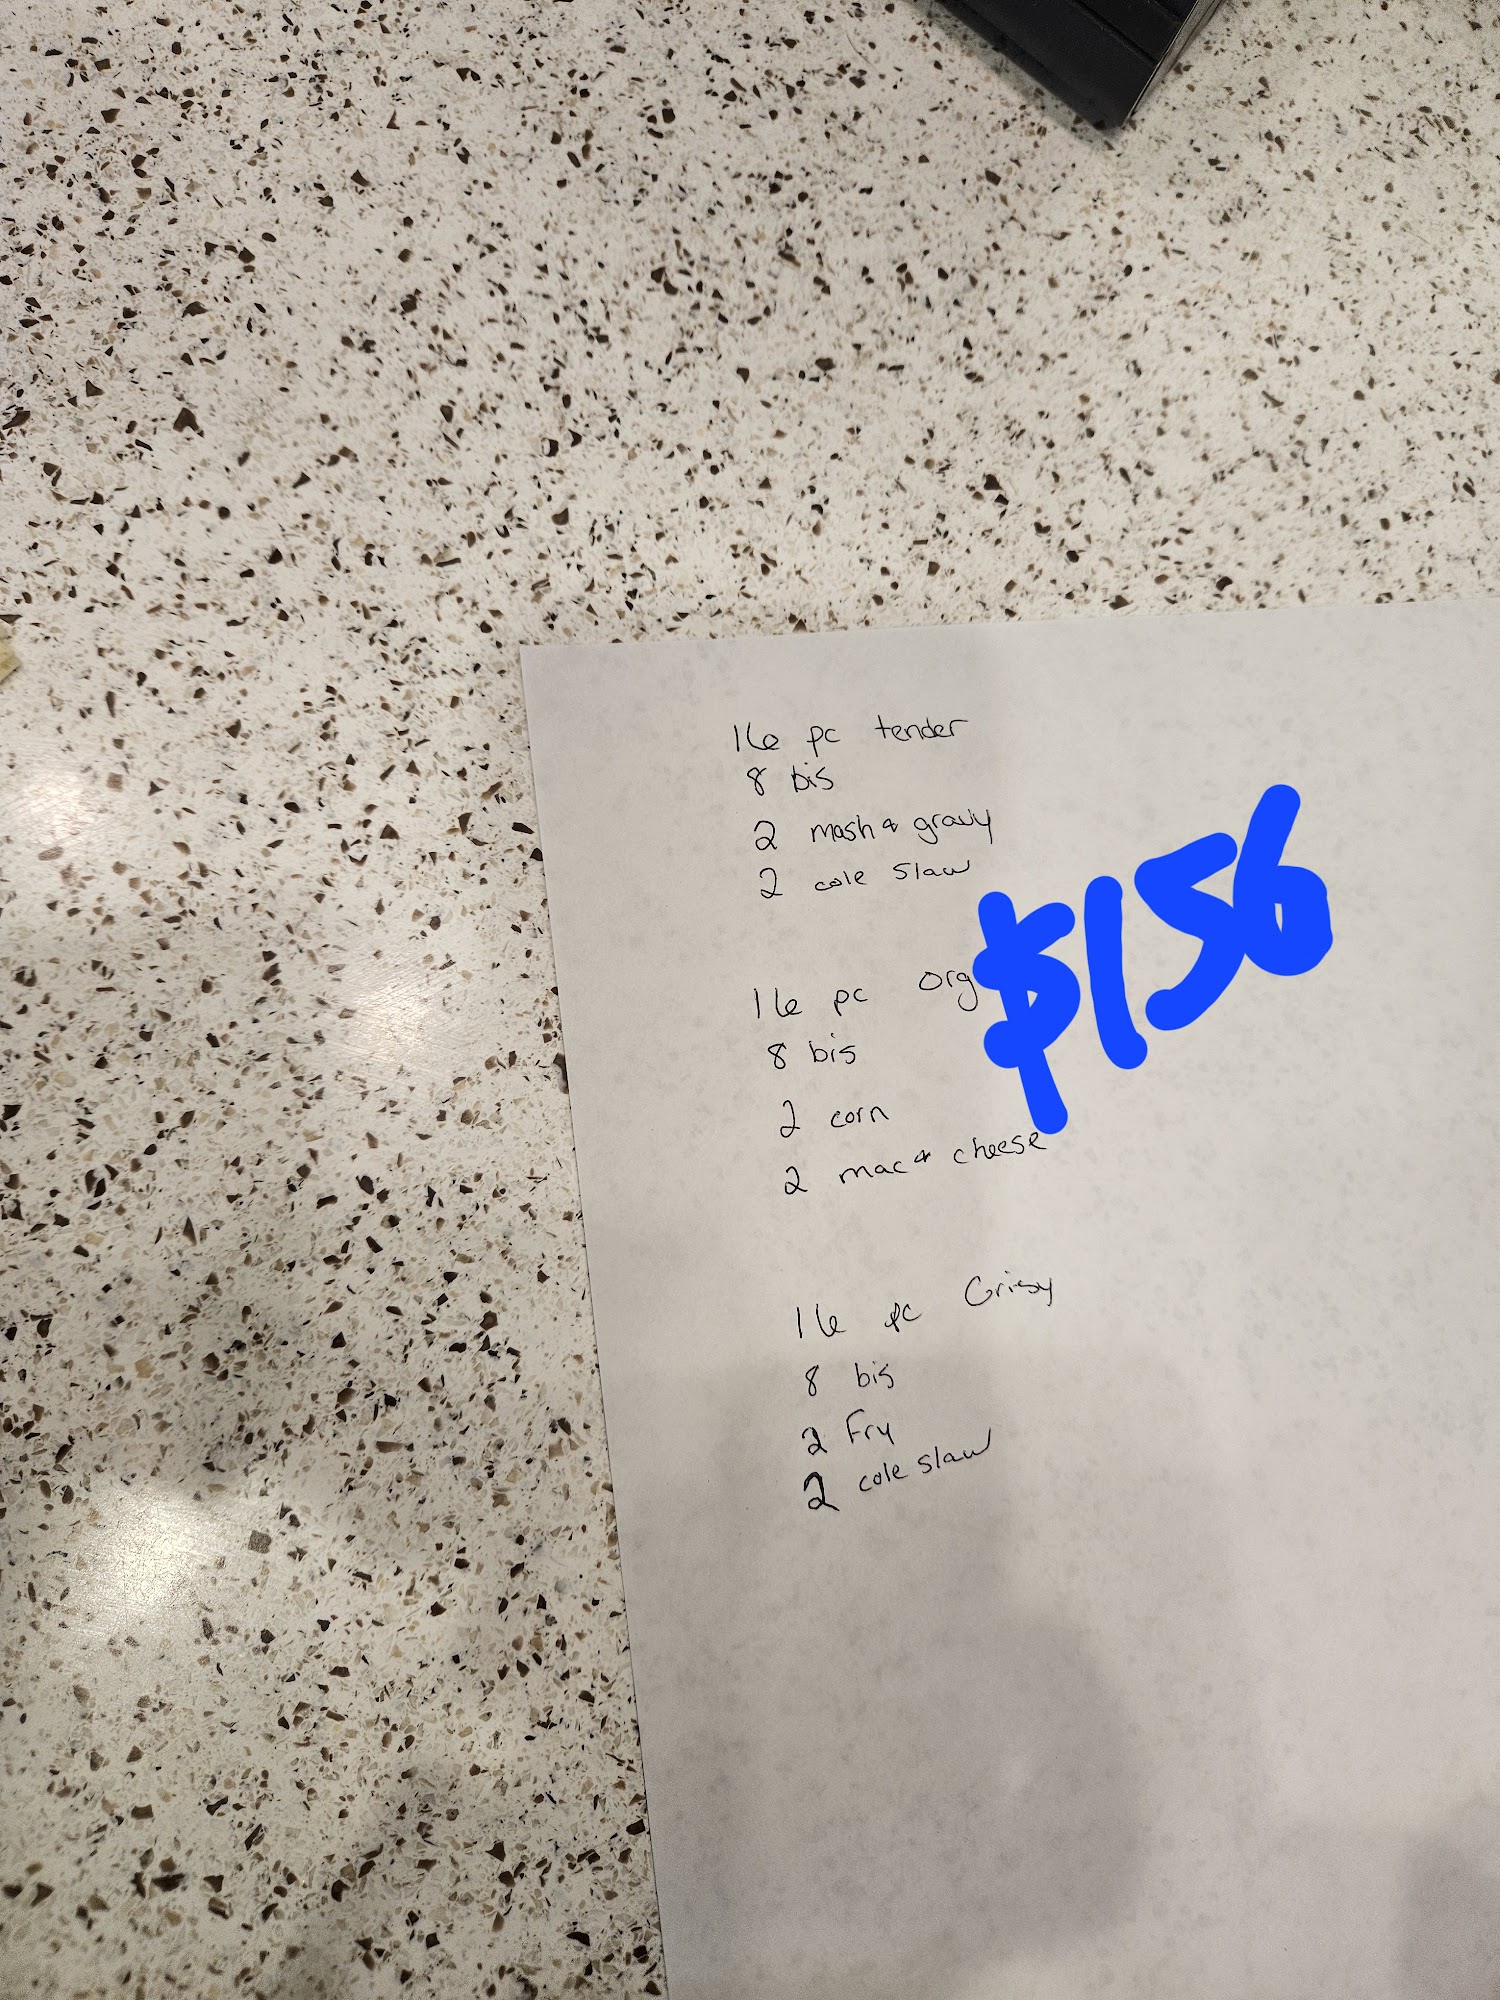 16 pc tender
8 bis
2 mash & gravy
2 cole slaw
$156
16 pc org
8 bis
2 corn
2 mac & cheese
16 pc Crisy
8 bis
2 Fry
2 cole slaw